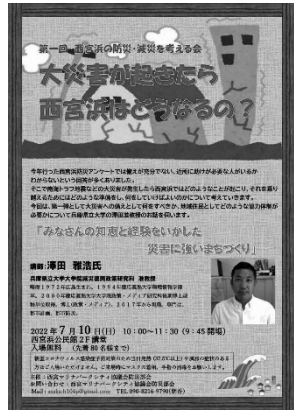 第一回 西宮浜の防災・減災を考える会
大災害が起きたら
西宮浜はどうなるの？
今年行った西宮浜防災アンケートでは備えが充分でない、近所に助けが必要な人がいるか
わからないという回答が多くありました。
そこで南海トラフ地震などの大災害が発生したら西宮浜ではどのようなことが起こり、それを乗り
越えるためにはどのような準備をし、何をしていけばよいのかについて考えていきます。
今回は、第一弾として大災害への備えとして何をすべきか、地域住民としてどのような協力体制が
必要かについて兵庫県立大学の澤田雅浩先生のお話を伺います。
「みなさんの知恵と経験をいかした
災害に強いまちづくり」
講師:澤田 雅浩氏
兵庫県立大学大学院減災復興政策研究科 准教授
2022年7月10日(日) 10:00～11:30 (9:45開場)
西宮浜公民館2F講堂
入場無料 (先着80名様まで)
主催:西宮マリナパークシティ協議会防災部会
お問い合わせ:西宮マリナパークシティ協議会防災部会